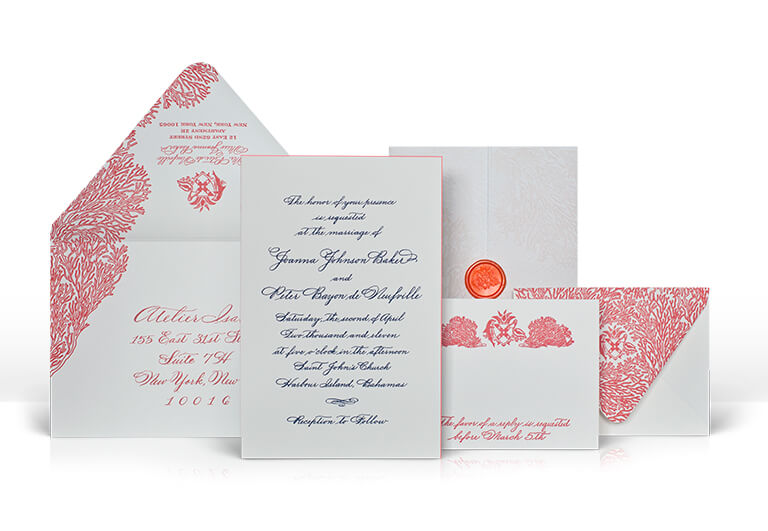 Mr. Peter de Neufville
Miss Joanna Baker
12 East 62nd Street
Apartment 2E
New York, New York 10065
Atelier Isa
155 East 31st St
Suite 7H
New York, New
10016
The honor of your presence
is requested
at the marriage of
Joanna Johnson Baker
and
Peter Bayon de Neufville
Saturday, the second of April
Two thousand and eleven
at five o'clock in the afternoon
Saint John's Church
Harbour Island, Bahamas
Reception to Follow
The favor of a reply is requested
before March 5th